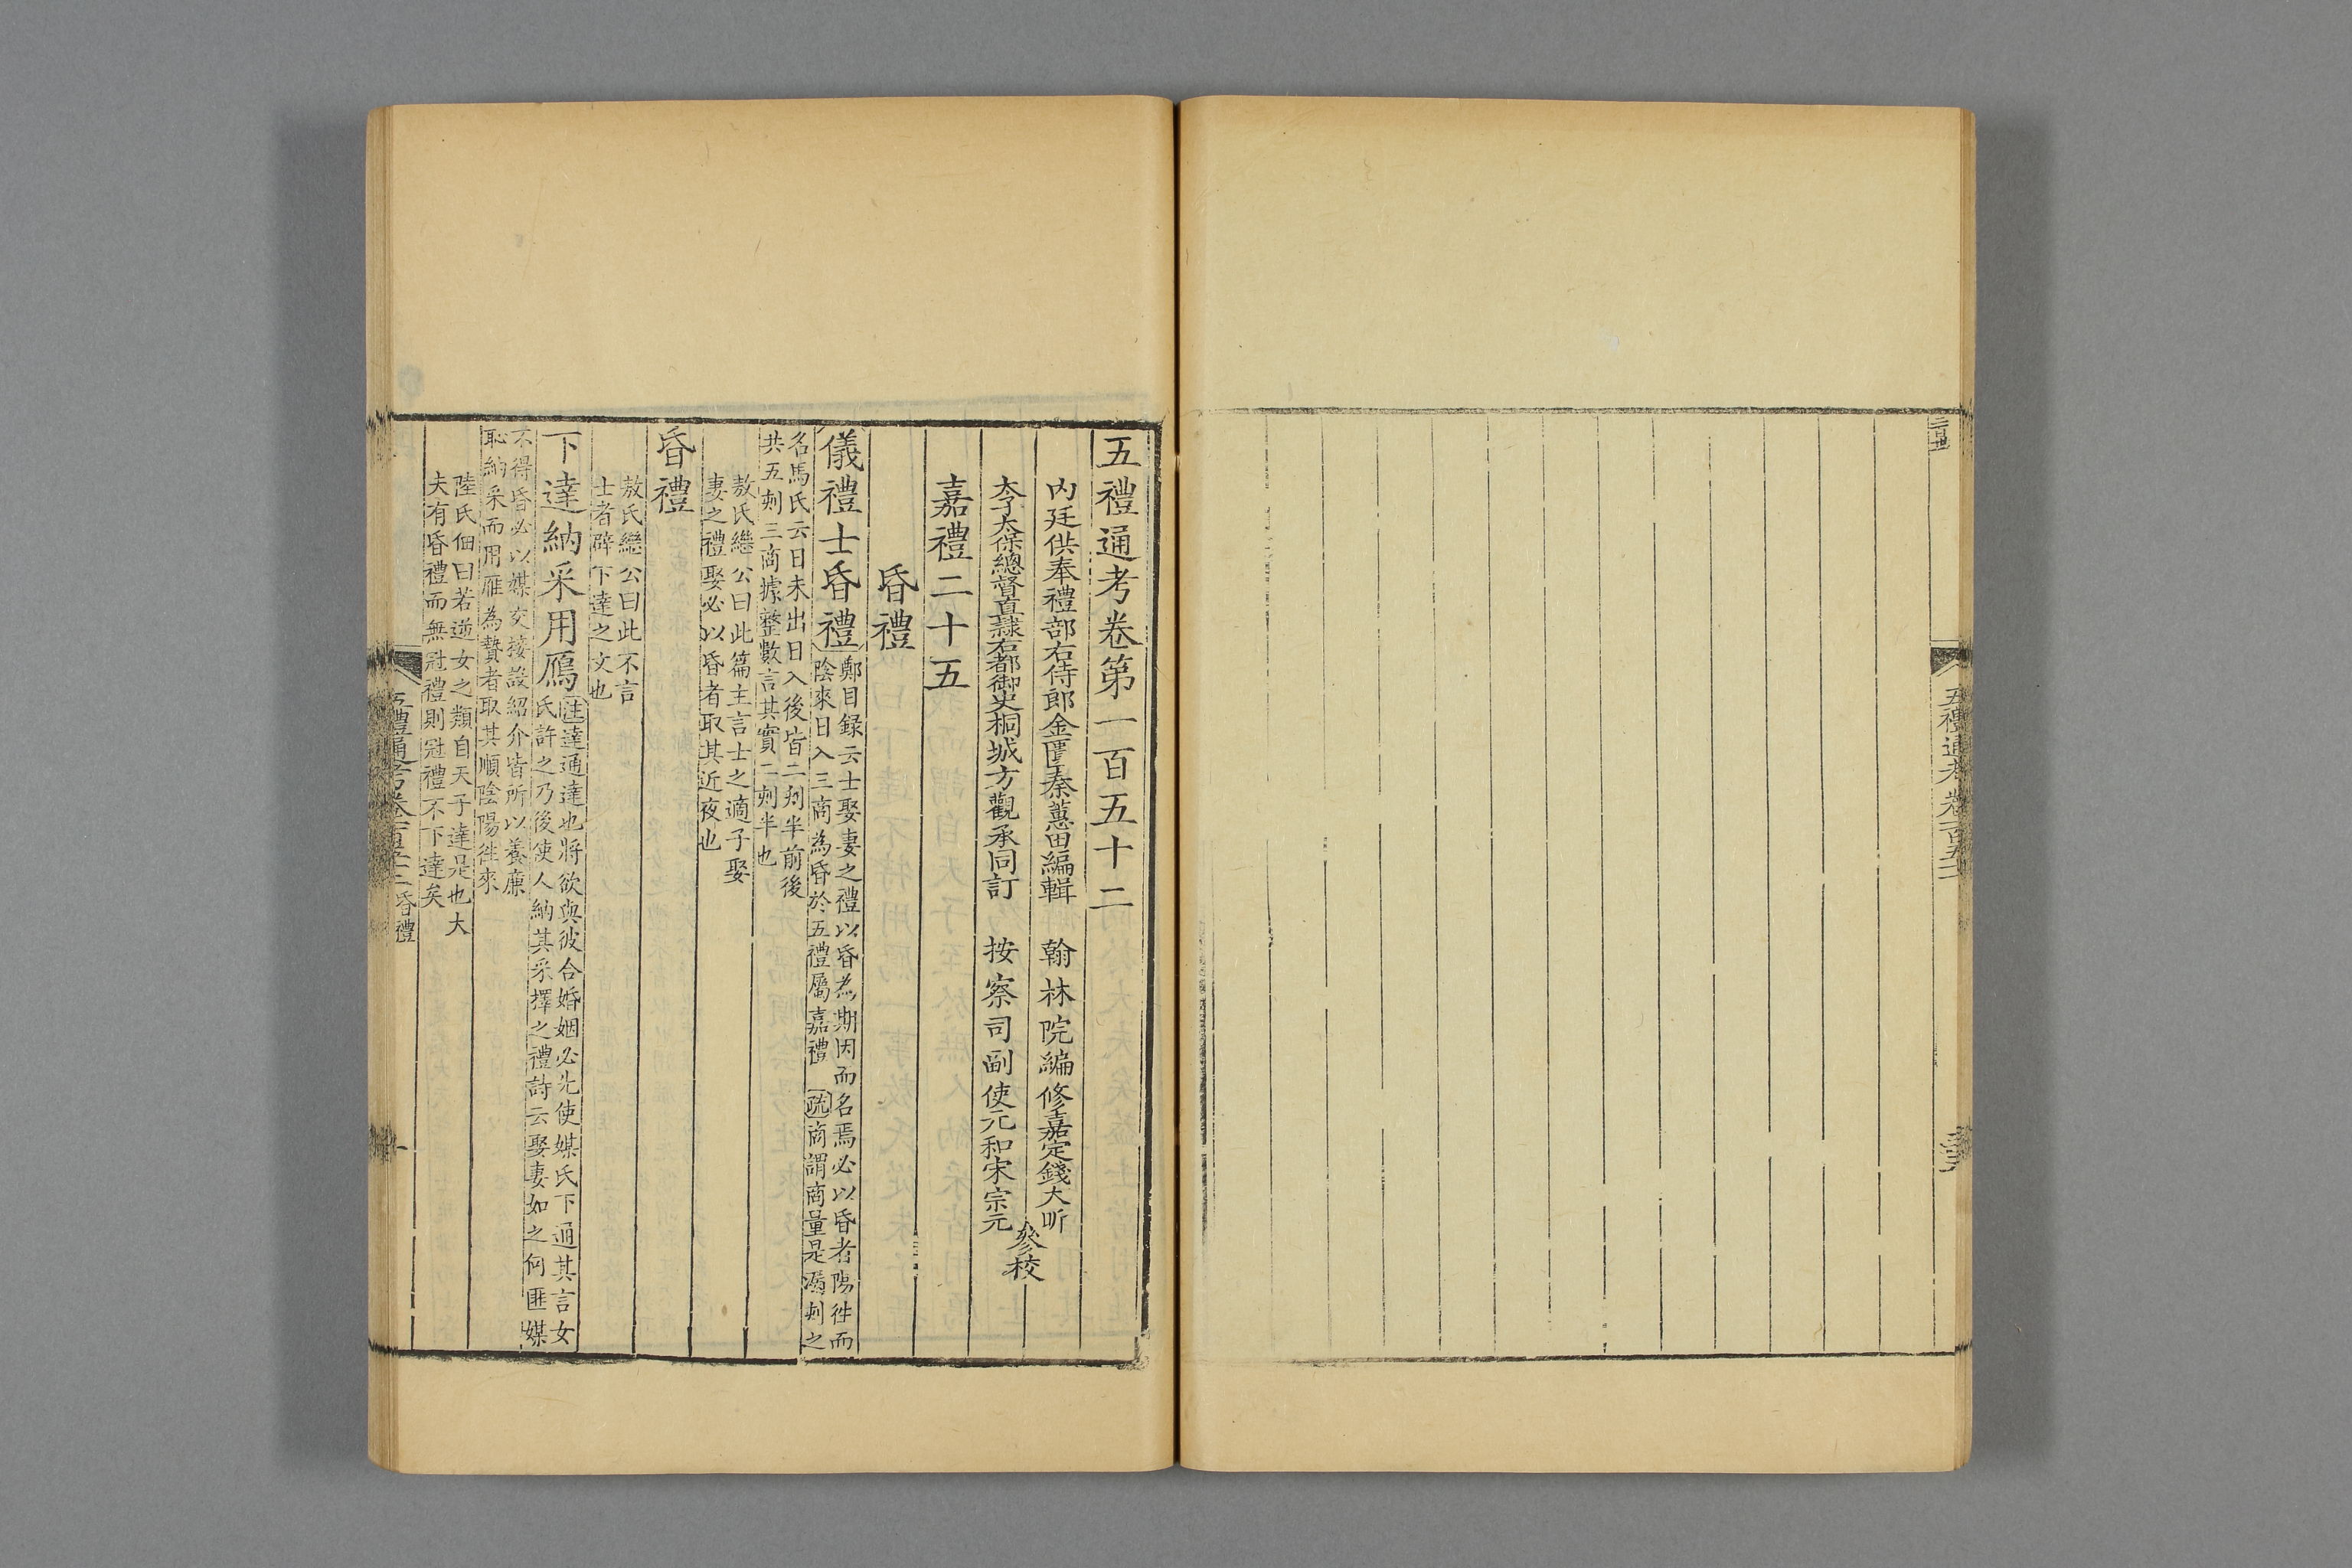 五禮通考卷第一百五十二
內廷供奉禮部右侍郎金匱秦蕙田編輯　翰林院編修嘉定錢大昕
太子太保總督直隸右都御史桐城方觀承同訂　按察司副使元和宋宗元
參校
嘉禮二十五
昏禮
儀禮士昏禮
鄭目録云士娶妻之禮以昏為期因而名焉必以昏者陽徃而
陰來日入三商為昏於五禮屬嘉禮　疏商謂商量是漏刻之
名馬氏云日未出日入後皆二刻半前後
共五刻三商據整數言其實二刻半也
敖氏繼公曰此篇主言士之適子娶
妻之禮娶必以昏者取其近夜也
昏禮
敖氏繼公曰此不言
士者辟下達之文也
下達納采用鴈
注達通達也將欲與彼合婚姻必先使媒氏下通其言女
氏許之乃後使人納其采擇之禮詩云娶妻如之何匪媒
不得昏必以媒交接設紹介皆所以養廉
恥納采而用雁為贄者取其順陰陽徃來
陸氏佃曰若逆女之類自天子達是也大
夫有昏禮而無冠禮則冠禮不下達矣
五禮通考卷一百五十二　昏禮
一
五禮通考卷一百五十